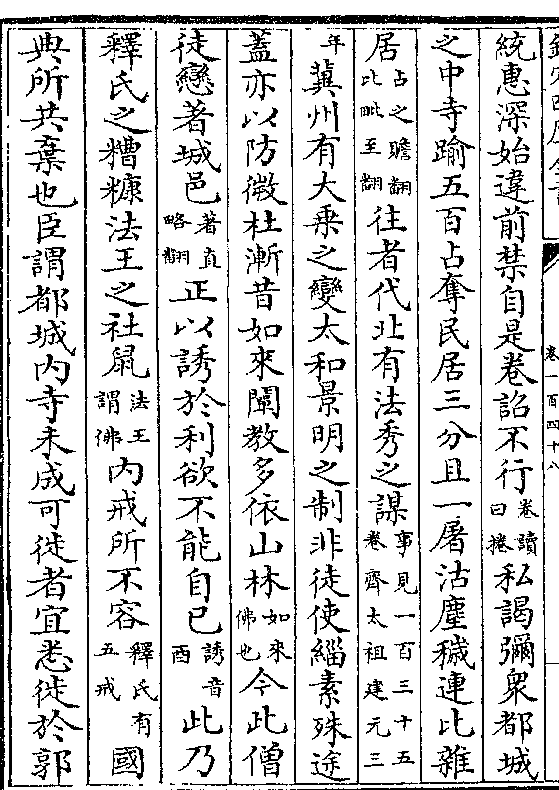 卷一百四十八
統惠深始違前禁自是卷詔不行卷讀曰捲私謁彌衆都城
之中寺踰五百占奪民居三分且一屠沽塵穢連比雜
居占之贍翻比毗至翻往者代北有法秀之謀事見一百三十五卷齊太祖建元三
年冀州有大乘之變太和景明之制非徒使緇素殊途
蓋亦以防微杜漸昔如來闡教多依山林如來佛也今此僧
徒戀著城邑著直略翻正以誘於利欲不能自已誘音酉此乃
釋氏之糟糠法王之社鼠法王謂佛內戒所不容釋氏有五戒國
典所共棄也臣謂都城內寺未成可徙者宜悉徙於郭